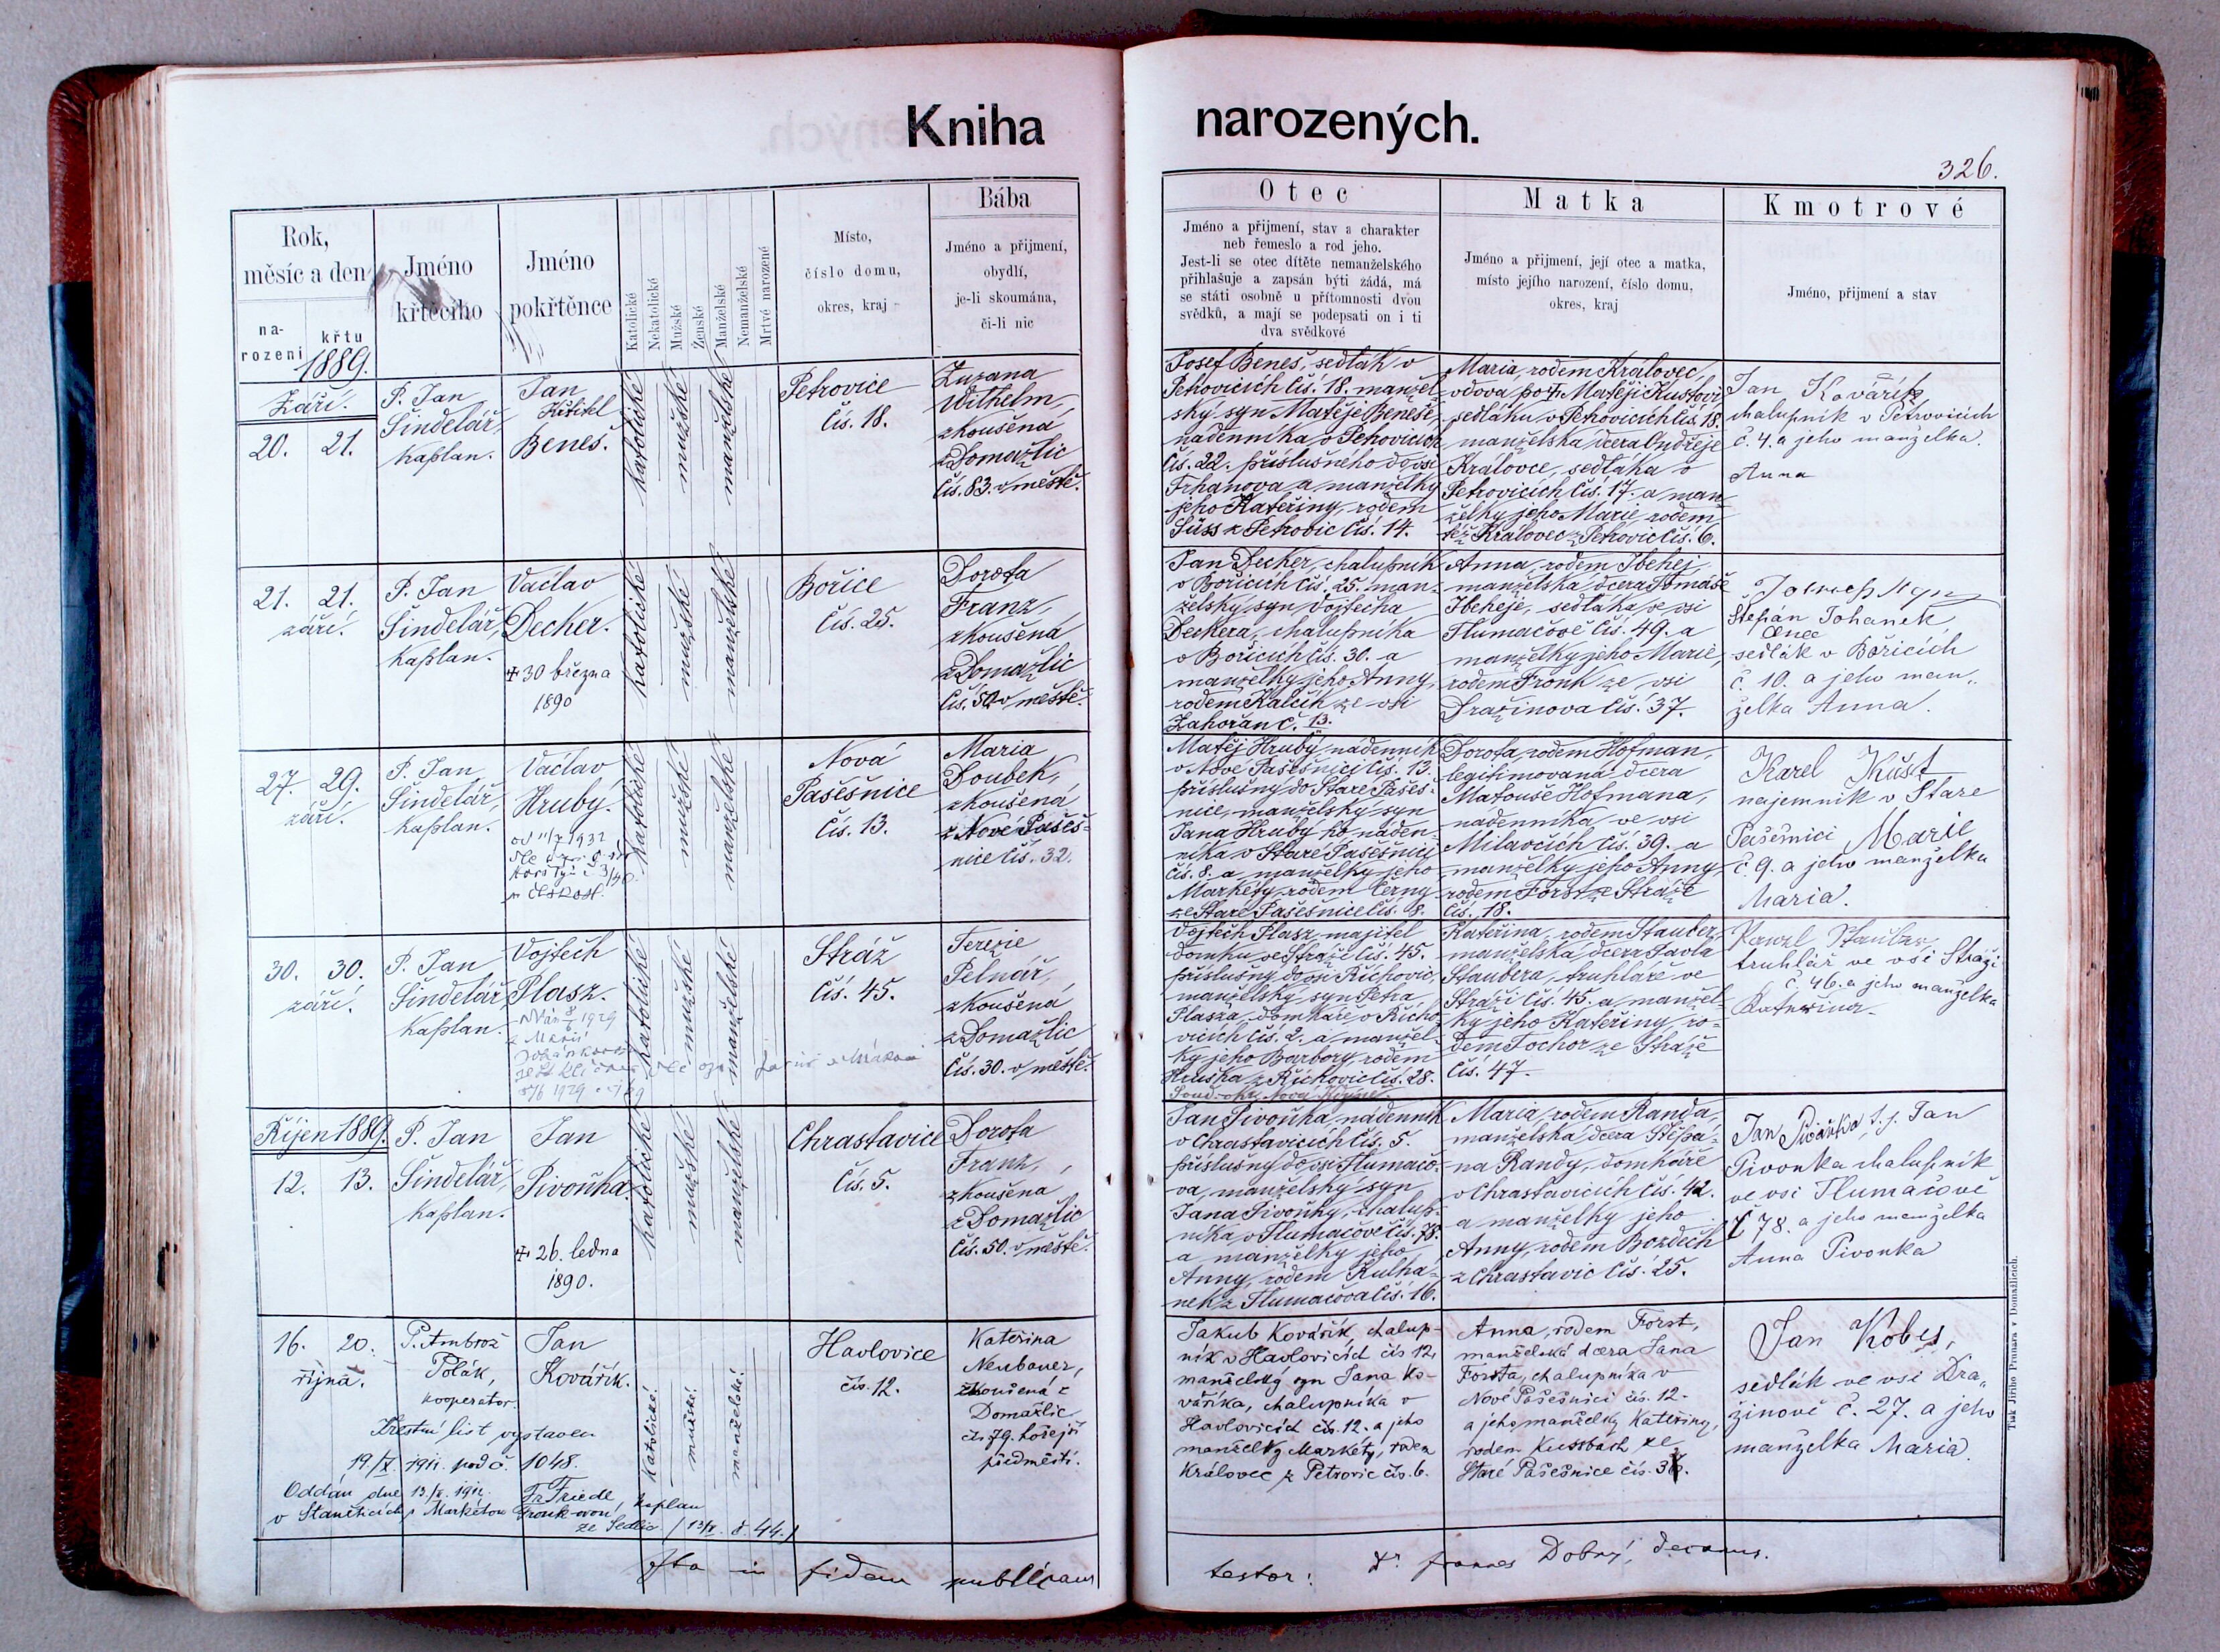 Kniha
narozených.
326.
Rok,
měsíc a den
na-
rozeni
křtu
1889.
Jméno
křtícího
Jméno
pokřtěnce
Katolické
Nekatolické
Mužské
Ženské
Manželské
Nemanželské
Mrtvé narozené
Místo,
číslo domu,
okres, kraj
Bába
Jméno a přijmení,
obydlí,
je-li skoumána,
či-li nic
Otec
Jméno a přijmení, stav a charakter
neb řemeslo a rod jeho.
Jest-li se otec dítěte nemanželského
přihlašuje a zapsán býti žádá, má
se státi osobně u přítomnosti dvou
svědků, a mají se podepsati on i ti
dva svědkové
Matka
Jméno a přijmení, její otec a matka,
místo jejího narození, číslo domu,
okres, kraj
Kmotrové
Jméno, přijmení a stav
Září.
20. 21.
P. Jan
Šindelář,
kaplan.
Jan
Křtitel
Beneš.
katolické
mužské
manželské
Petrovice
Čís. 18.
Zuzana
Wilhelm,
zkoušená
z Domažlic
čís. 83. v městě.
Josef Beneš, sedlák v
Petrovicích čís. 18. manžel-
ský syn Matěje Beneše,
nádenníka v Petrovicích
čís. 22. příslušného do vsi
Trhanova a manželky
jeho Kateřiny, rodem
Süss z Petrovic čís. 14.
Maria, rodem Královec,
vdova po † Matěji Kustovi
sedláku v Petrovicích čís. 18.
manželská dcera Ondřeje
Královce, sedláka v
Petrovicích čís. 17. a man-
želky jeho Marie rodem
též Královec z Petrovic čís. 6.
Jan Kovářík,
chalupník v Petrovicích
č. 4. a jeho manželka.
Anna
21. 21.
září.
P. Jan
Šindelář,
kaplan.
Václav
Decker.
✠ 30 března
1890
katolické
mužské
manželské
Bořice
Čís. 25.
Dorota
Franz,
zkoušená
z Domažlic
čís. 50 v městě.
Jan Decker, chalupník
v Bořicích čís. 25. man-
želský syn Vojtěcha
Deckera, chalupníka
v Bořicích čís. 30. a
manželky jeho Anny,
rodem Kalčík ze vsi
Zahořan č. 13.
Anna, rodem Ibehej,
manželská dcera Tomáše
Ibeheje, sedláka ve vsi
Tlumačově čís. 49. a
manželky jeho Marie,
rodem Fronk ze vsi
Dražinova čís. 37.
Štepán Johanek
sedlák v Bořicích
č. 10. a jeho man-
želka Anna.
27. 29.
září.
P. Jan
Šindelář,
kaplan.
Václav
Hrubý.
katolické
mužské
manželské
Nová
Pašešnice
čís. 13.
Maria
Doubek,
zkoušená
z Nové Pašeš-
nice čís. 32.
Matěj Hrubý, nádenník
v Nové Pašešnici čís. 13.
příslušný do Staré Pašeš-
nice, manželský syn
Jana Hrubýho, náden-
níka v Staré Pašešnici
čís. 8. a manželky jeho
Markéty, rodem Černy
ze Staré Pašešnice čís. 8.
Dorota, rodem Hofman,
legitimovaná dcera
Matouše Hofmana,
nádenníka ve vsi
Milavčích čís. 39. a
manželky jeho Anny,
rodem Forst ze Stráže
čís. 18.
Karel Kušt
najemník v Stare
Pašešnici Marie
č. 9. a jeho manželka
Maria.
30. 30.
září.
P. Jan
Šindelář,
kaplan.
Vojtěch
Plasz.
katolické
mužské
manželské
Stráž
čís. 45.
Terezie
Pelnář,
zkoušená
z Domažlic
čís. 30. v městě.
Vojtěch Plasz, majitel
domku ve Stráži čís. 45.
příslušný do vsi Říchovic,
manželský syn Petra
Plasza, domkaře v Řícho-
vicích čís. 2. a manžel-
ky jeho Barbory, rodem
Hruška z Říchovic čís. 28.
Kateřina, rodem Stauber,
manželská dcera Pavla
Staubera, truhláře ve
Stráži čís. 45. a manžel-
ky jeho Kateřiny, ro-
dem Tochor ze Stráže
čís. 47.
Stauber,
truhlář ve vsi Straži
č. 46. a jeho manželka
Kateřina.
Říjen 1889.
12. 13.
P. Jan
Šindelář,
kaplan.
Jan
Pivoňka.
✠ 26. ledna
1890.
katolické
mužské
manželské
Chrastavice
čís. 5.
Dorota
Franz,
zkoušena
z Domažlic
čís. 50. v městě.
Jan Pivoňka, nádenník
v Chrastavicích čís. 5.
příslušný do vsi Tlumačo-
va, manželský syn
Jana Pivoňky, chalup-
níka v Tlumačově čís. 78.
a manželky jeho
Anny, rodem Kulhá-
nek z Tlumačova čís. 16.
Maria, rodem Randa,
manželská dcera Štěpá-
na Randy, domkáře
v Chrastavicích čís. 42.
a manželky jeho
Anny, rodem Bozděch
z Chrastavic čís. 25.
Jan Pivoňka, t. j. Jan
Pivonka chalupník
ve vsi Tlumačově
č 78. a jeho manželka
Anna Pivonka
16. 20.
října.
P. Ambrož
Polák,
kooperator.
Jan
Kovářík.
Křestní list vystaven
19./X. 1911. pod č. 1048.
Oddán dne 13./X. 1912.
Fr. Friedl, kaplan
v Staněticích s Markétou Fronkovou
ze Sedlic. / 13/X. č. 44. /
katolické.
mužské.
manželské.
Havlovice
čís. 12.
Kateřina
Neubauer,
zkoušená z
Domažlic
čís 79. hořejší
předměstí.
Jakub Kovářík, chalup-
ník v Havlovicích čís 12,
manželský syn Jana Ko-
váříka, chalupníka v
Havlovicích čís. 12. a jeho
manželky Markéty, rodem
Královec z Petrovic čís. 6.
Anna, rodem Forst,
manželská dcera Jana
Forsta, chalupníka v
Nové Pašešnici čís. 12.
a jeho manželky Kateřiny,
rodem Kussbach ze
Staré Pašešnice čís.
Jan Kobes,
sedlák ve vsi Dra-
žinově č. 27. a jeho
manželka Maria.
Ita in fidem publicam
testor: Dobrý, decanus.
Tisk Jiřího Prunara v Domažlicích.